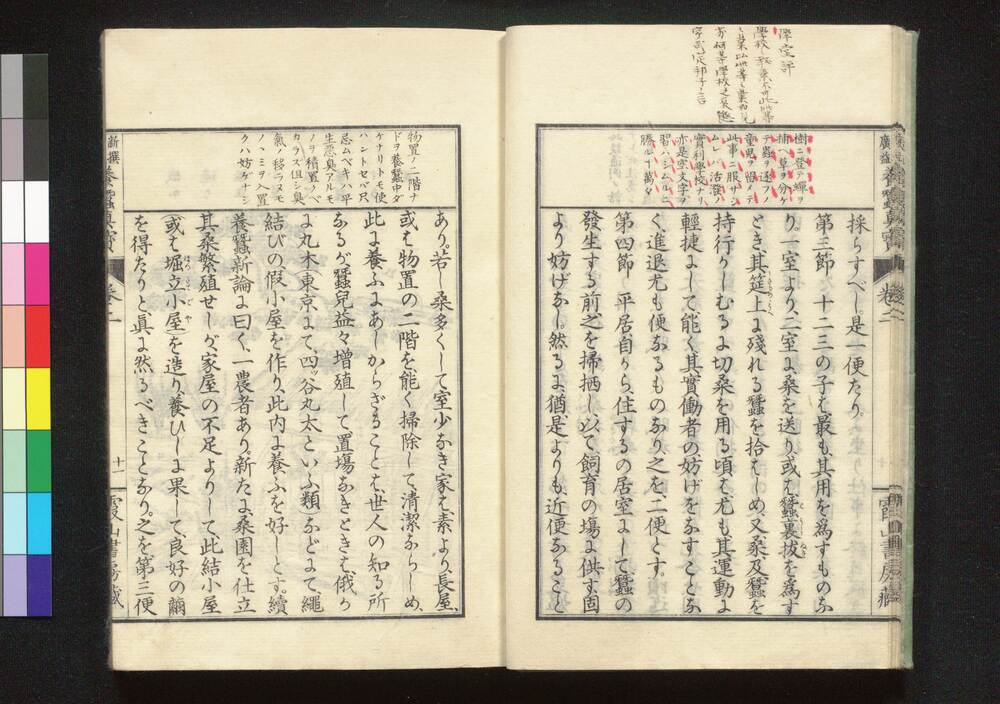 樹ニ登テ蟬ヲ
捕ヘ草ヲ分ケ
テ蟲ヲ逐フノ
童兒ヲ留メテ
此事ニ服サシ
ムレバ活潑ノ
實利學校ナリ
亦是空文字ヲ
習ハシムルニ
勝ル丁萬々
採らすべし是一便たり。
第三節 十二三の子は最も其用を爲すものな
り。一室より、二室に桑を送り、或は蠶裏拔を爲す
とき、其筵上に殘れる蠶を拾はしめ、又桑、及蠶を
持行かしむるに切桑を用る頃は尤も其運動に
輕捷にして、能く其實働者の妨げをなすことな
く、進退尤も便なるものなり、之を二便とす。
第四節 平居自から、住するの居室にして蠶の
發生する前之を掃栖し以て、飼育の塲に供す、固
より妨げなし。然るに猶是よりも近便なること
霞山書房藏
物置ノ二階ナ
ドヲ養蠶中ダ
ケナリトモ使
ハントセバ只
忌ムベキハ平
生惡臭アルモ
ノヲ積置クベ
カラズ但シ臭
氣ノ移ラヌモ
ノノミヲ入置
クハ妨ゲナシ
あり。若し桑多くして室少なき家は素より、長屋、
或は物置の二階を能く掃除して、清潔ならしめ、
此に養ふにあしからざることは世人の知る所
なるが蠶兒益々増殖して置塲なきときは、俄か
に丸木東京にて、四ッ谷丸太といふ類などにて、繩
結びの假小屋を作り、此内に養ふを好しとす。續
養蠶新論に曰く、一農者あり。新たに桑園を仕立
其桑繁殖せしが家屋の不足よりして、此結小屋
或は堀立小屋を造り、養ひしに果して、良好の繭
を得たりと眞に然るべきことなり。之を第三便
新撰 養蠶眞寶
卷二
十一
霞山書房藏